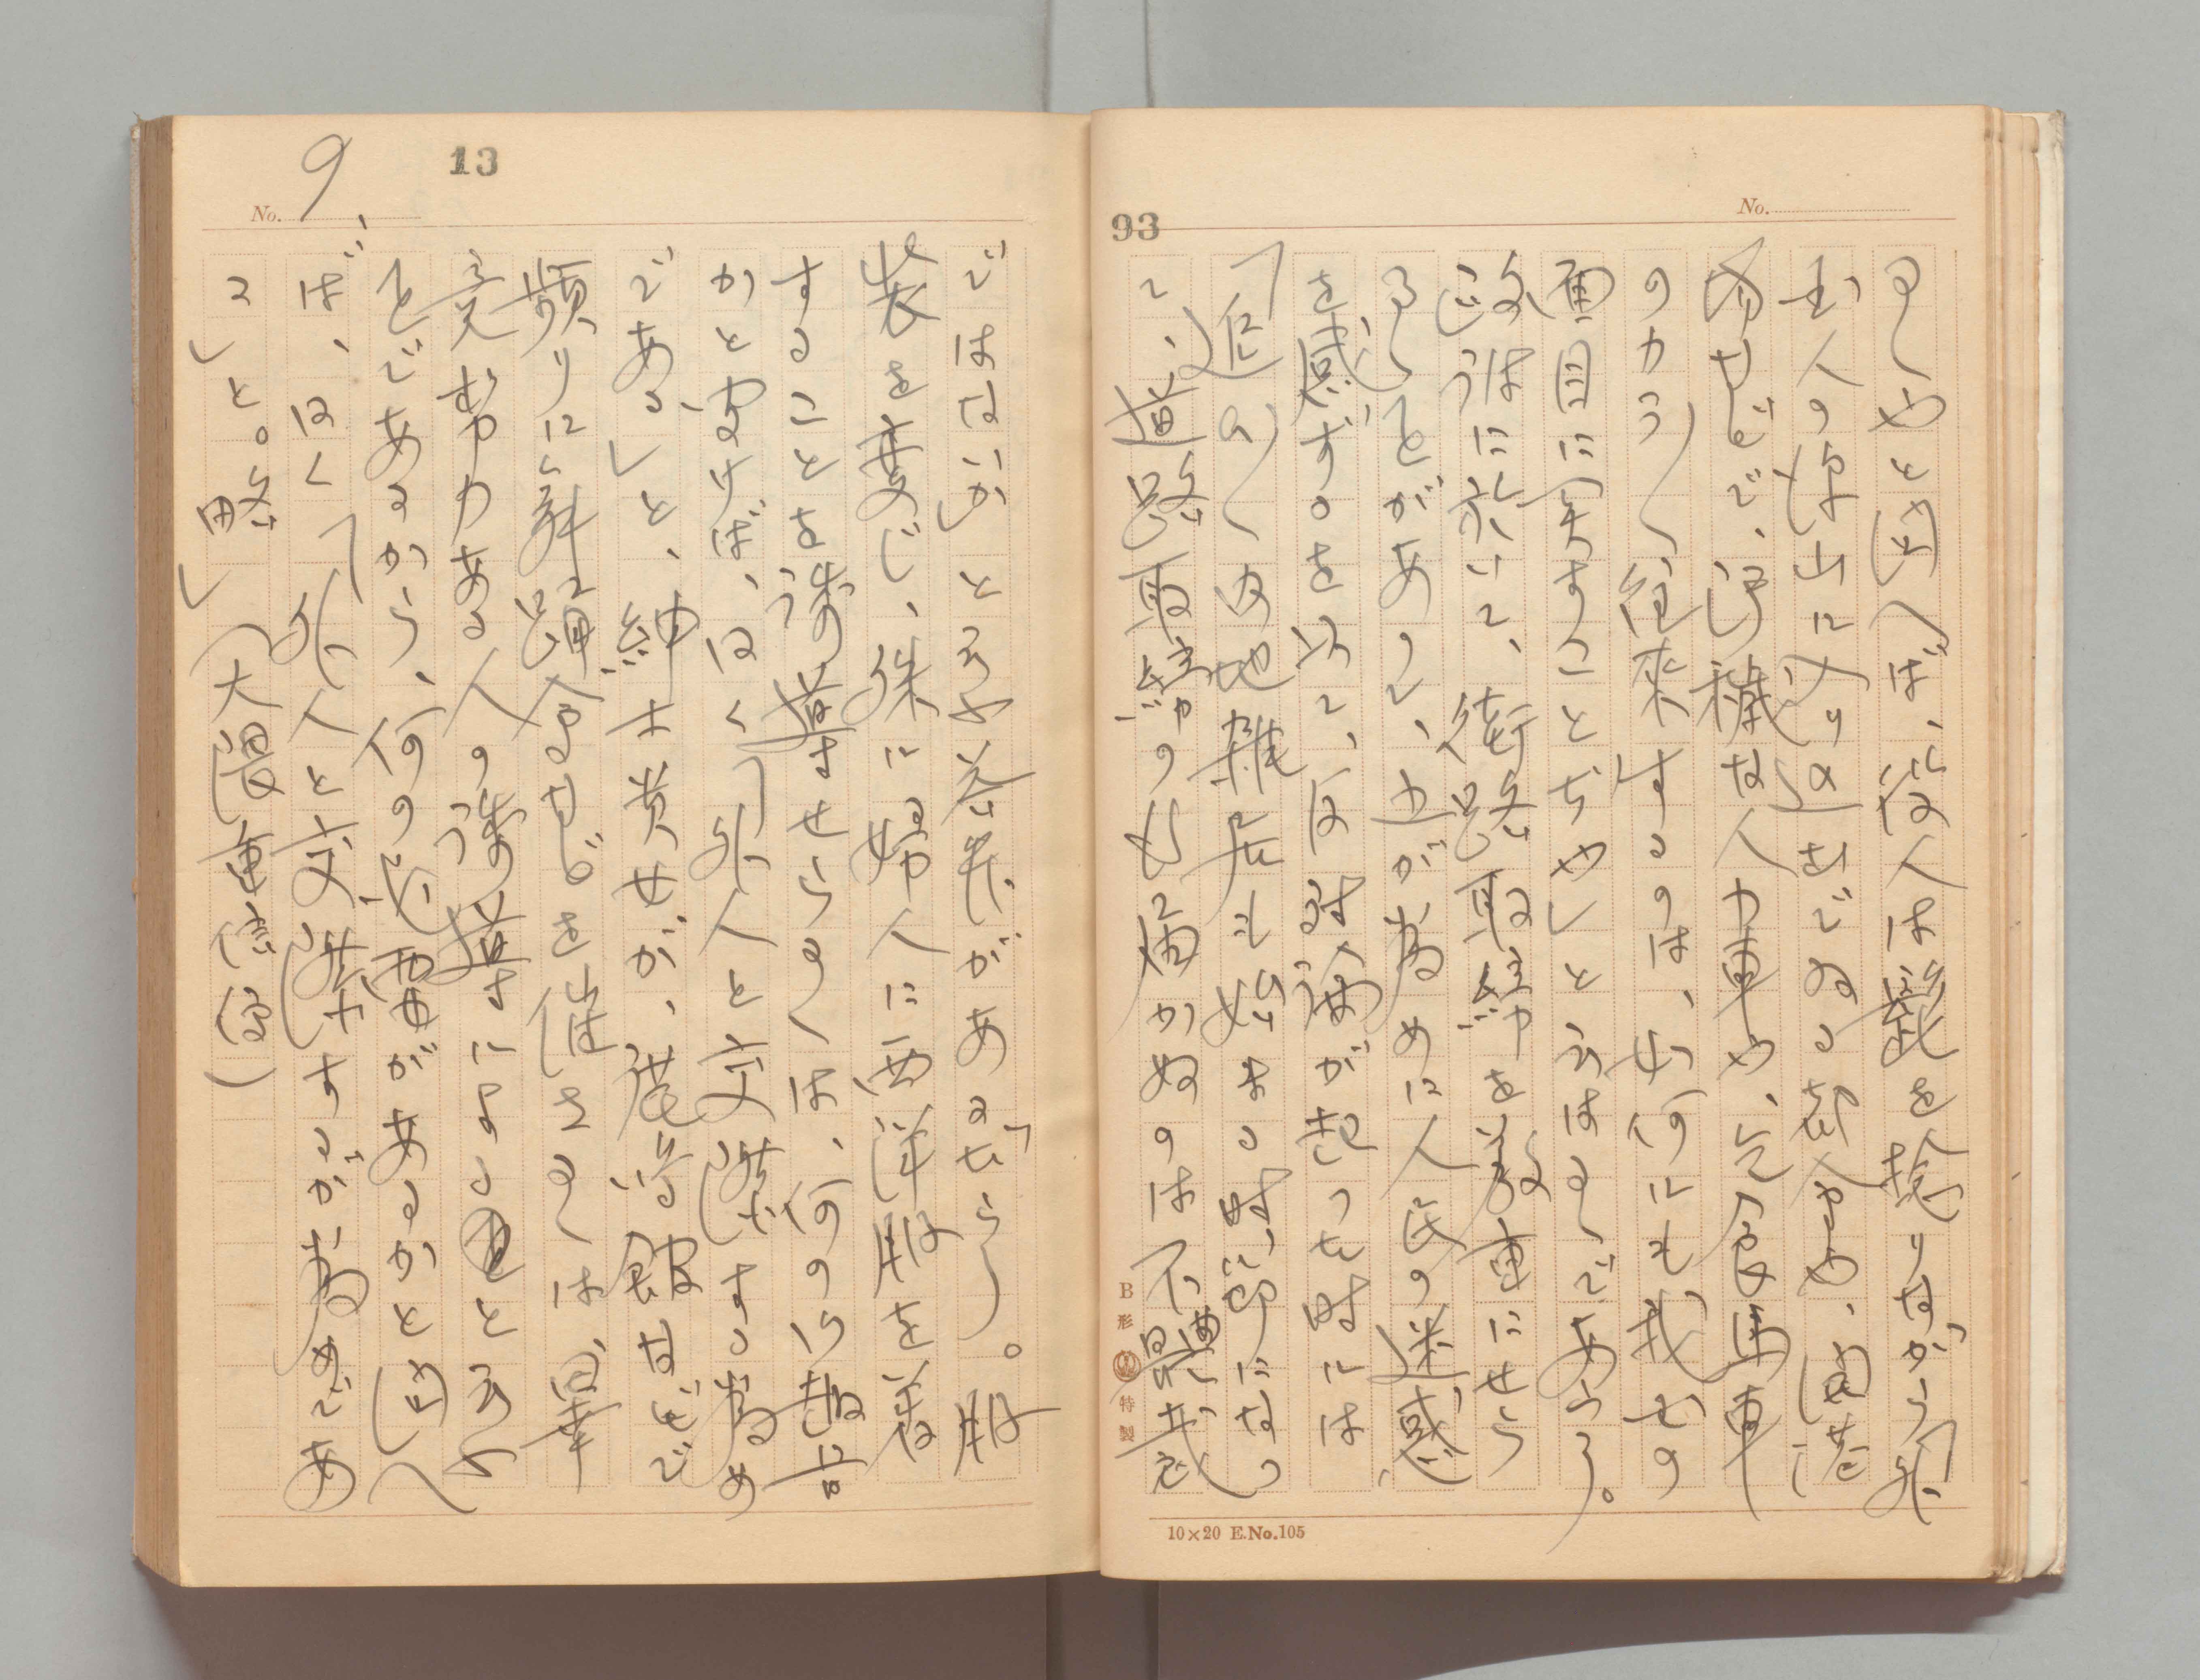 No.
93
るゝやと問へば、役人は髭を捻りながら「外
国人の深山に入り込むでゐる都人や、開港
場などで、汚穢な人力車や、乞食馬車
のガラ〱往来するのは、如何にも我が国の
面目に関すことぢや」と云はるゝであらう。
政府に於いて、街路取締を厳重にせら
るゝことがあつて、之が為めに人民の迷惑
を感ずるを以て、反対論が起つた時には
「近〱内地雑居も始まる時節になつ
て、道路取締の行届かぬのは不体裁
B形 特製
10×20 E.No.105
13
No. 9、
ではないか」と云ふ答弁があるだらう。服
装を変じ、殊に婦人に西洋服を着
することを誘導せらるゝは、何の必要
かと尋けば、曰く「外人と交際する為め
である」と、紳士貴女が、鹿鳴館などで
頻りに舞踏会などを催さるゝは、畢
竟勢力ある人の誘導によると云ふ
ことであるから、何の必要があるかと問へ
ば、曰く「外人と交際するが為めであ
る」と。略」(大隈重信伯)